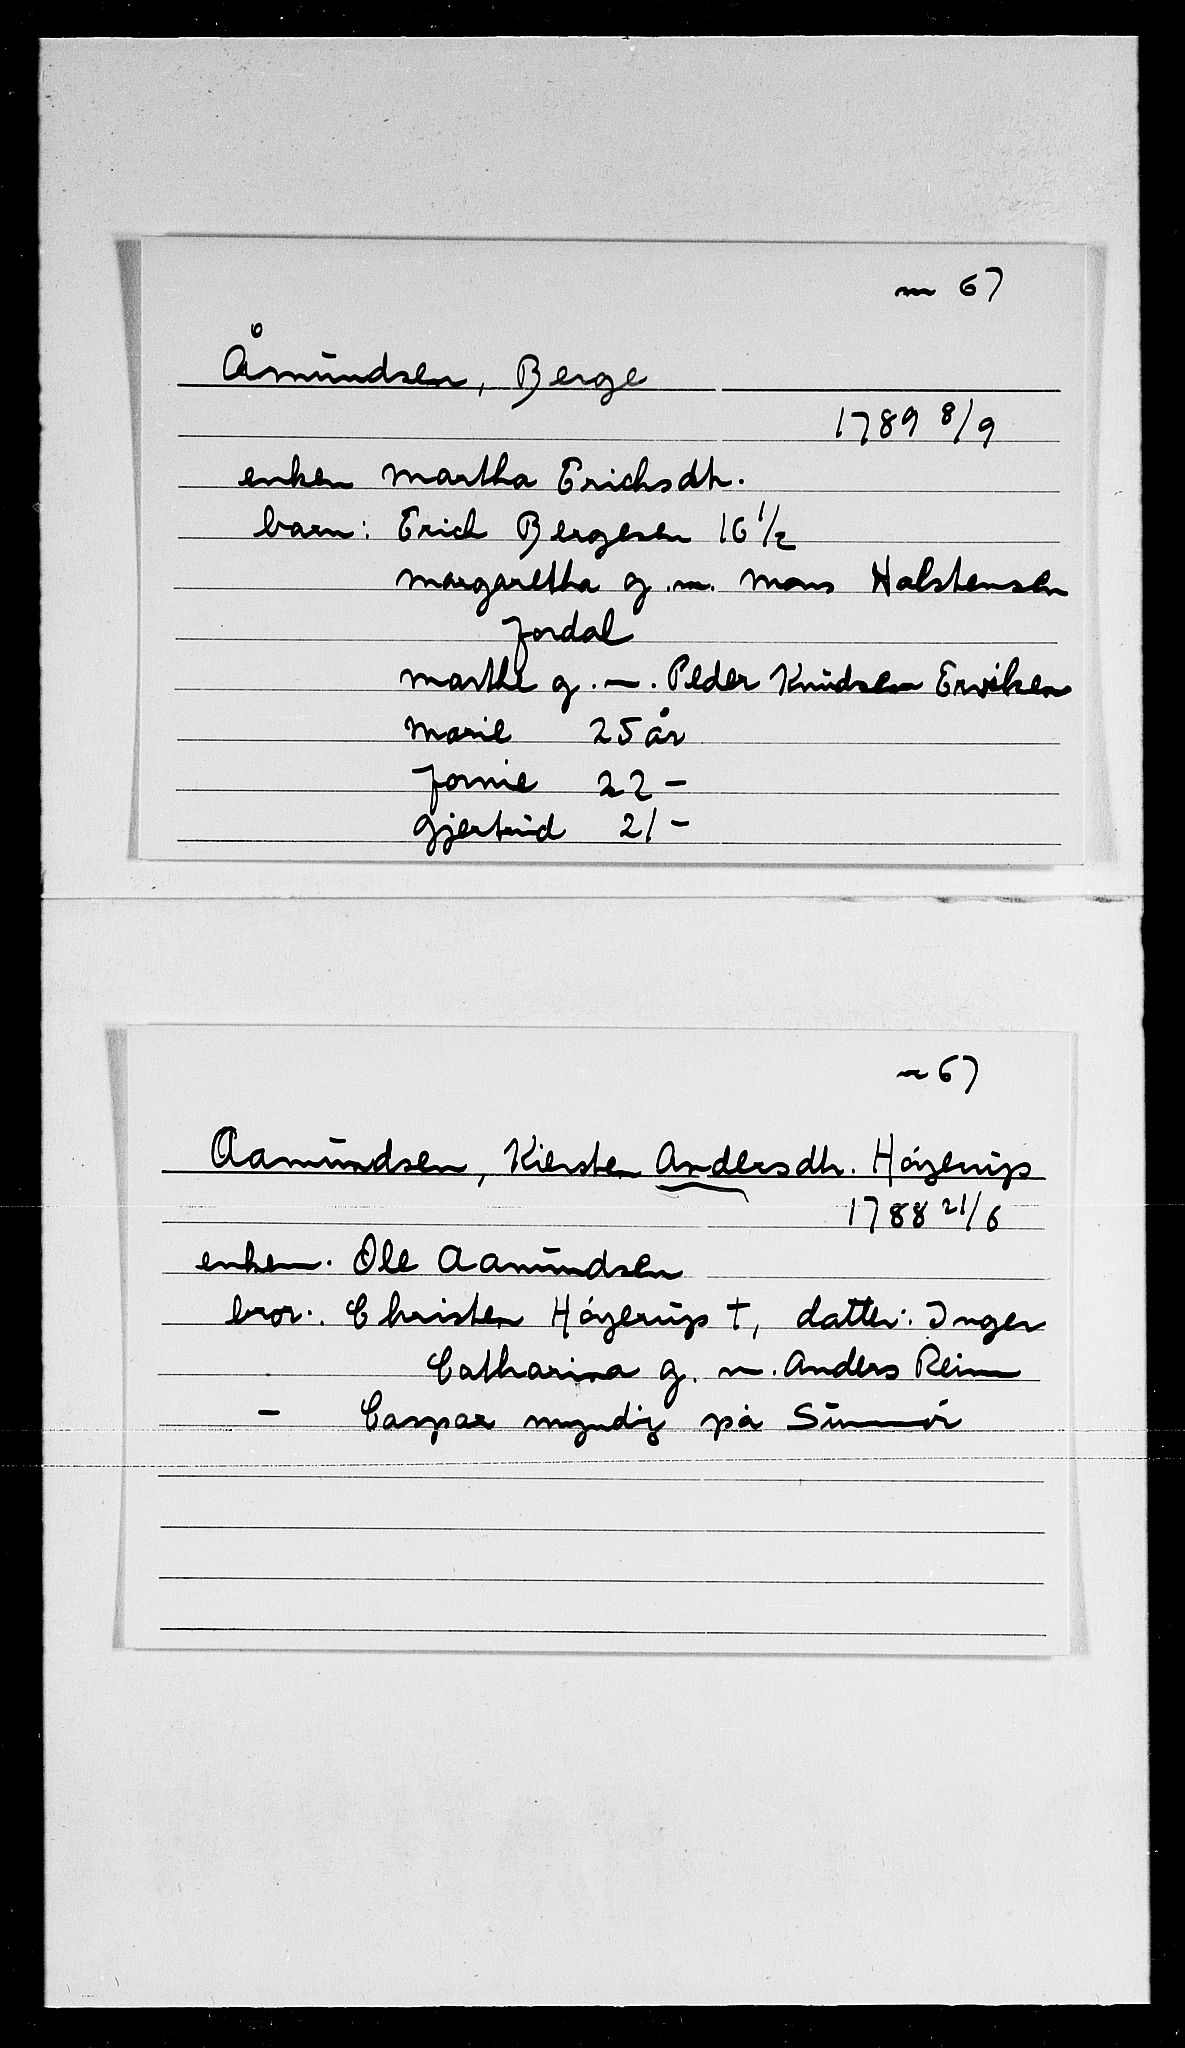 m 67
Åmundsen, Berge
1789 8/9
enken Martha Erichsdtr.
barn: Erich Bergesen 16 1/2
Margaretha g.m. Mons Halstensen
Jordal
Marthe g.m. Peder Knudsen Erviken
Marie 25 år
22 -
Gjertrud 21 -
m 67
Aamundsen, Kiersten Andersdtr. Höyerup
1788 21/6
enkem. Ole Aamundsen
bror: Christen Höyerup †, datter: Inger
Catharina g.m. Anders Reim
- Caspar myndig på Sünmör